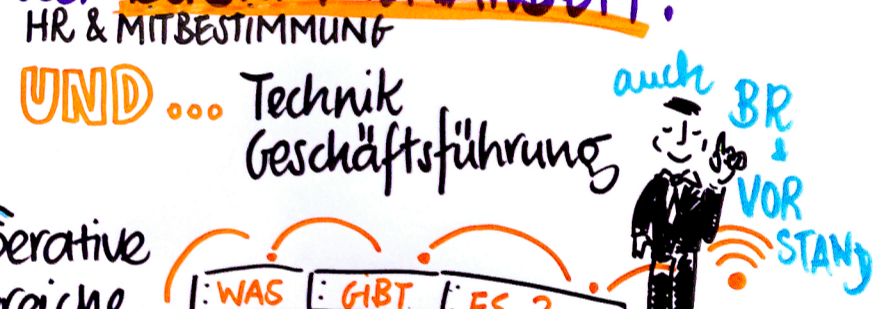 HR & MITBESTIMMUNG
UND ... Technik
Geschäftsführung
auch
BR
&
VOR
STAND
WAS GIBT ES?